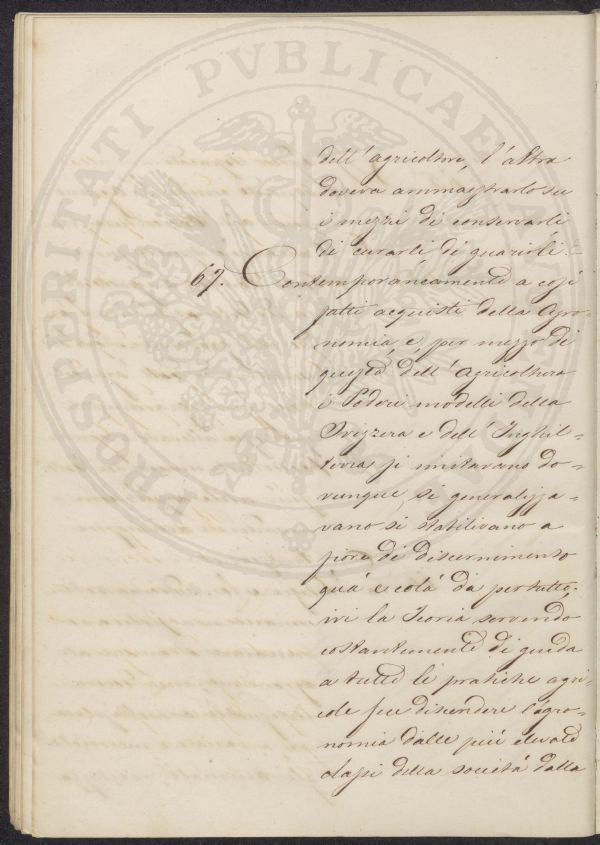 PROSPERITATI PVBLICAE
dell' agricoltore, l'altra
doveva ammaestrarlo su
i mezzi di conservarli
di curarli di guarirli.
67. Contemporaneamente a così
fatti acquisti della Agro-
nomia, e per mezzo di
questa dell' Agricoltura
i Poderi modelli della
Svizzera e dell' Inghil-
terra si imitavano do-
vunque, si generalizza-
vano si stabilivano a
fiore di discernimento
quà e colà da pertutto:
ivi la Teoria servendo
costantemente di guida
a tutte le pratiche agri-
cole fece discendere l'agro-
nomia dalle più elevate
classi della società dalla